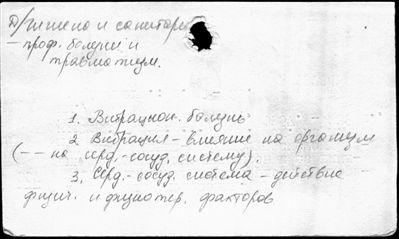 гигиена и санитария
– проф. болезни и
травматизм.
1. Вибрацион. болезнь
2 Вибрация – влияние на организм
(– – на серд.-сосуд. систему).
3. Серд.-сосуд. система – действие
физич. и физиотер. факторов